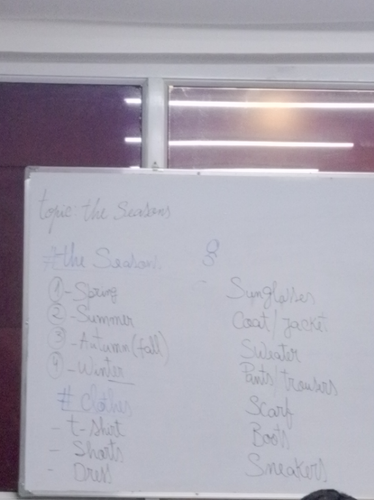 topic: the Seasons
# the Seasons
① - Spring
② - Summer
③ - Autumn (fall)
④ - Winter
# Clothes
- t-shirt
- Shorts
- Dress
Sunglasses
Coat / Jacket
Sweater
Pants / trousers
Scarf
Boots
Sneakers